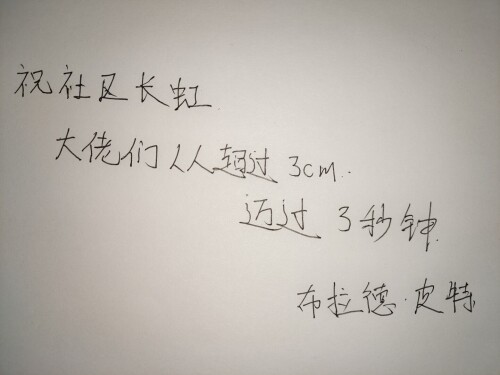 祝社区长虹
大佬们人人超过 3cm.
迈过 3秒钟
布拉德·皮特